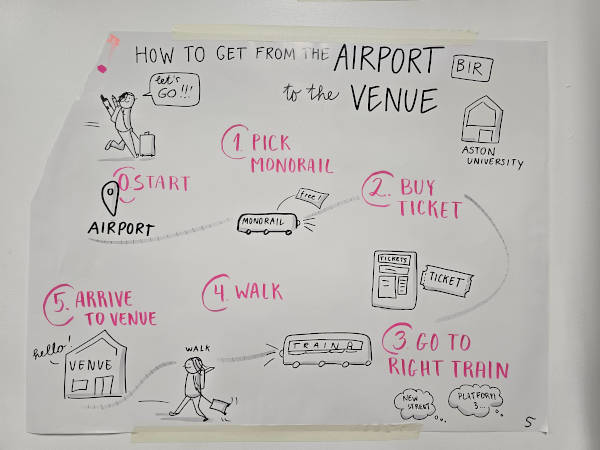 HOW TO GET FROM THE AIRPORT
to the VENUE
BIR
let's
GO!!!
ASTON
UNIVERSITY
0 START
AIRPORT
1. PICK
MONORAIL
free!
MONORAIL
2. BUY
TICKET
TICKETS
TICKET
3. GO TO
RIGHT TRAIN
NEW
STREET
PLATFORM
3...
TRAIN
4. WALK
WALK
5. ARRIVE
TO VENUE
hello!
VENUE
5